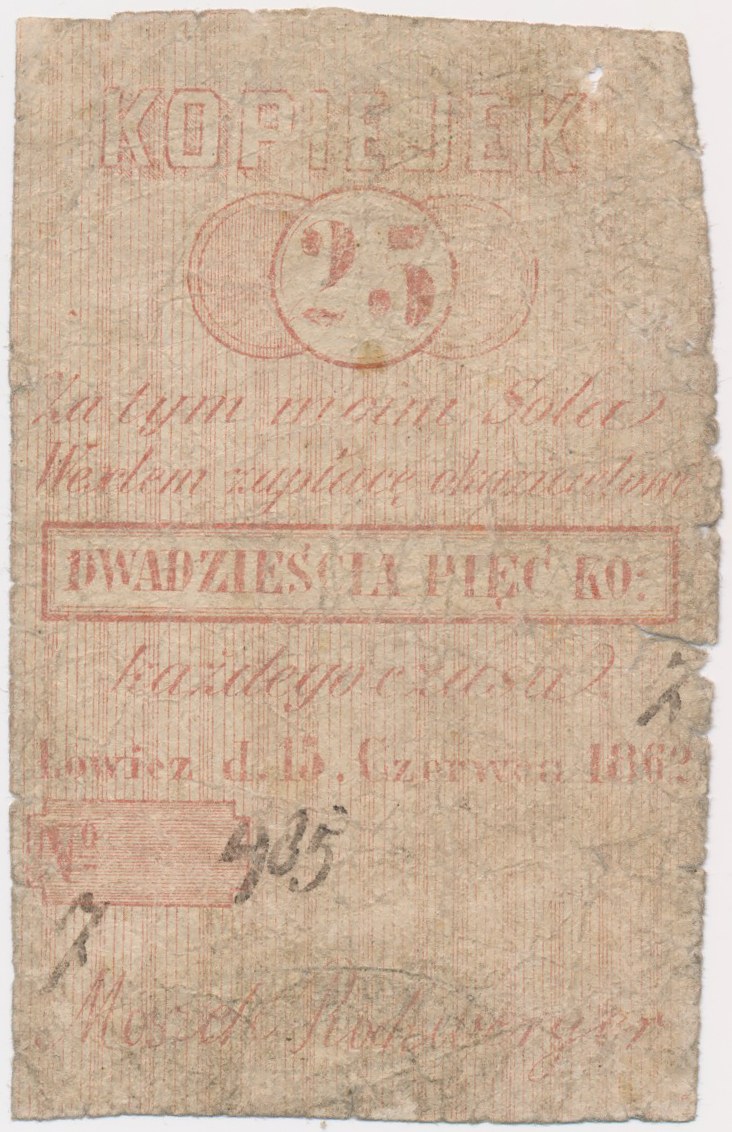 KOPIEJEK
25
Za tym moim Sola
Wexlem zapłacę okazicielowi
DWADZIEŚCIA PIĘĆ KO:
każdego czasu
7
Łowicz d. 15. Czerwca 1862
No 485
7
Mosek